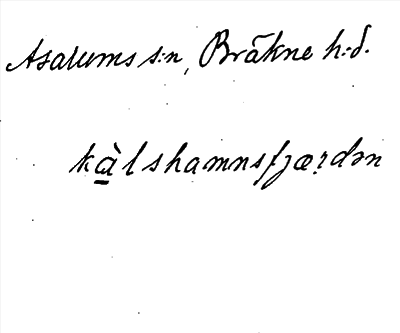 Asarums s:n, Bräkne h:d.
kà̱lshamnsfjæṛdən